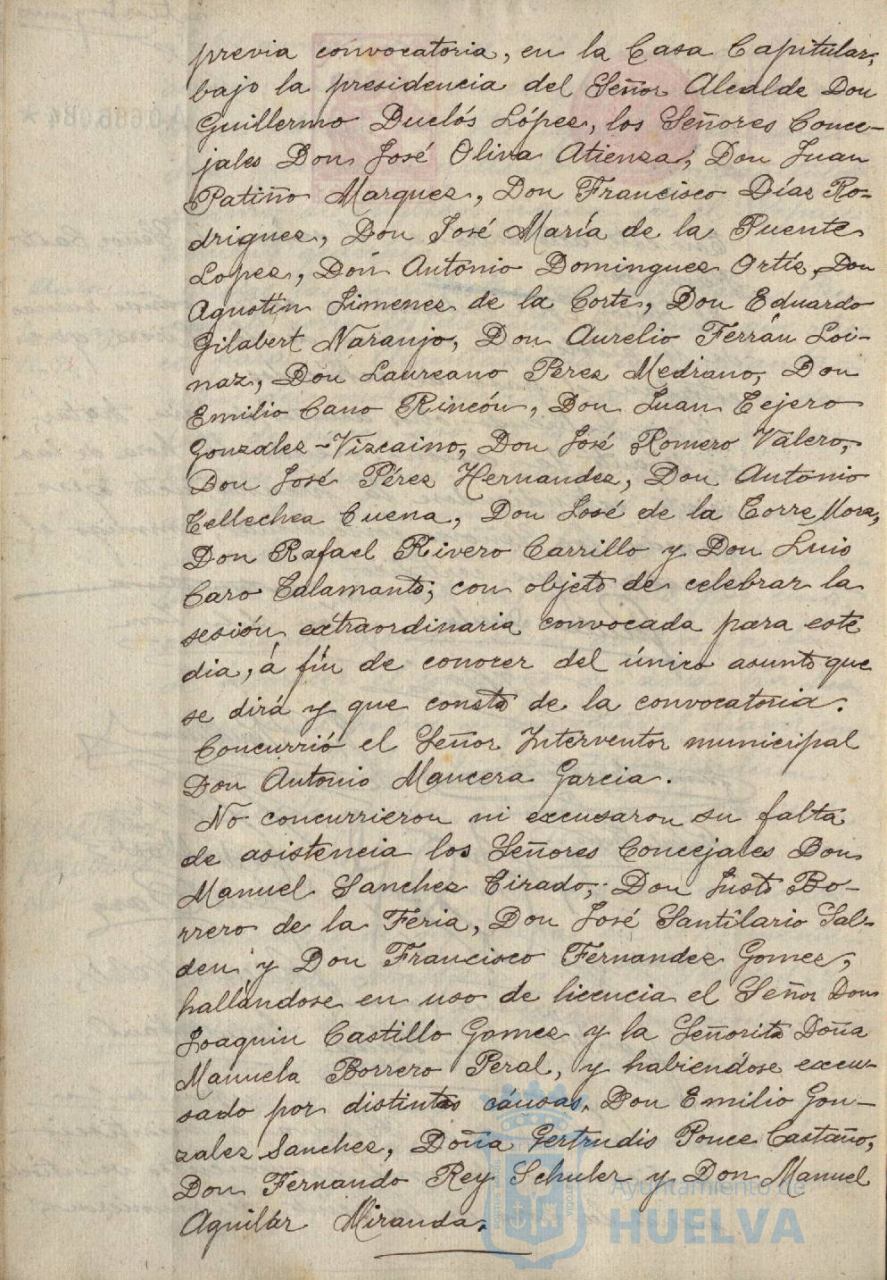 previa convocatoria, en la Casa Capitular,
bajo la presidencia del Señor Alcalde Don
Guillermo Duclós López, los Señores Conce-
jales Don José Oliva Atienza, Don Juan
Patiño Marquez, Don Francisco Díaz Ro-
driguez, Don José María de la Puente
Lopez, Don Antonio Dominguez Ortíz, Don
Agustín Jimenez de la Corte, Don Eduardo
Gilabert Naranjo, Don Aurelio Ferrán Loi-
naz, Don Laureano Perez Medrano, Don
Emilio Cano Rincón, Don Juan Tejero
González-Vizcaino, Don José Romero Valero,
Don José Pérez Hernandez, Don Antonio
Tellechea Cuena, Don José de la Torre Mora,
Don Rafael Rivero Carrillo y Don Luis
Caro Talamanto; con objeto de celebrar la
sesión extraordinaria convocada para este
dia, á fín de conocer del único asunto que
se dirá y que consta de la convocatoria.
Concurrió el Señor Interventor municipal
Don Antonio Mancera Garcia.
No concurrieron ni excusaron su falta
de asistencia los Señores Concejales Don
Manuel Sanchez Tirado, Don Justo Bo-
rrero de la Feria, Don José Santilario Sal-
den y Don Francisco Fernandez Gomez,
hallándose en uso de licencia el Señor Don
Joaquin Castillo Gomez y la Señorita Doña
Manuela Borrero Peral, y habiendose excu-
sado por distintas cáusas, Don Emilio Gon-
zalez Sanchez, Doña Gertrudis Ponce Castaño,
Don Fernando Rey Schuler y Don Manuel
Aguilar Miranda.
Ayuntamiento de
HUELVA